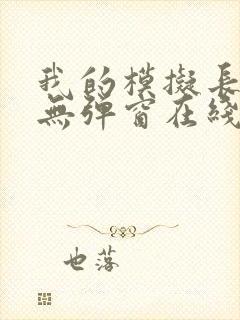 我的模擬長
無彈窗在綫
也落